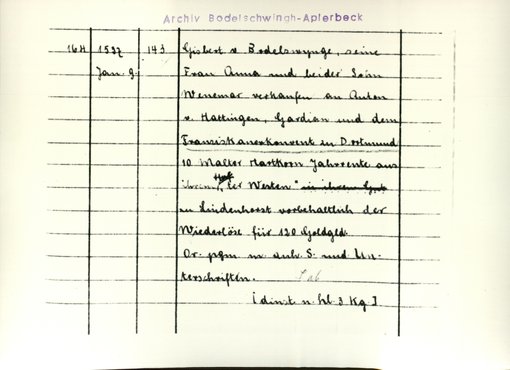 Archiv Bodelschwingh-Apierbeck
164 1532 143 Gisbert v. Bodelswynge, seine
Jan. 9. Frau Anna und beider Sohn
Wenemar verkaufen an Anton
v. Hattingen, Gardian und dem
Franziskanerkonvent zu Dortmund
10 Malter Hartkorn Jahrrente aus
ihrem Hof "ter Westen" in ihrem Gut
zu Lindenhorst vorbehaltlich der
Wiederlöse für 120 Goldgld.
Or. pgm. m. anh. S. und Un-
terschriften.